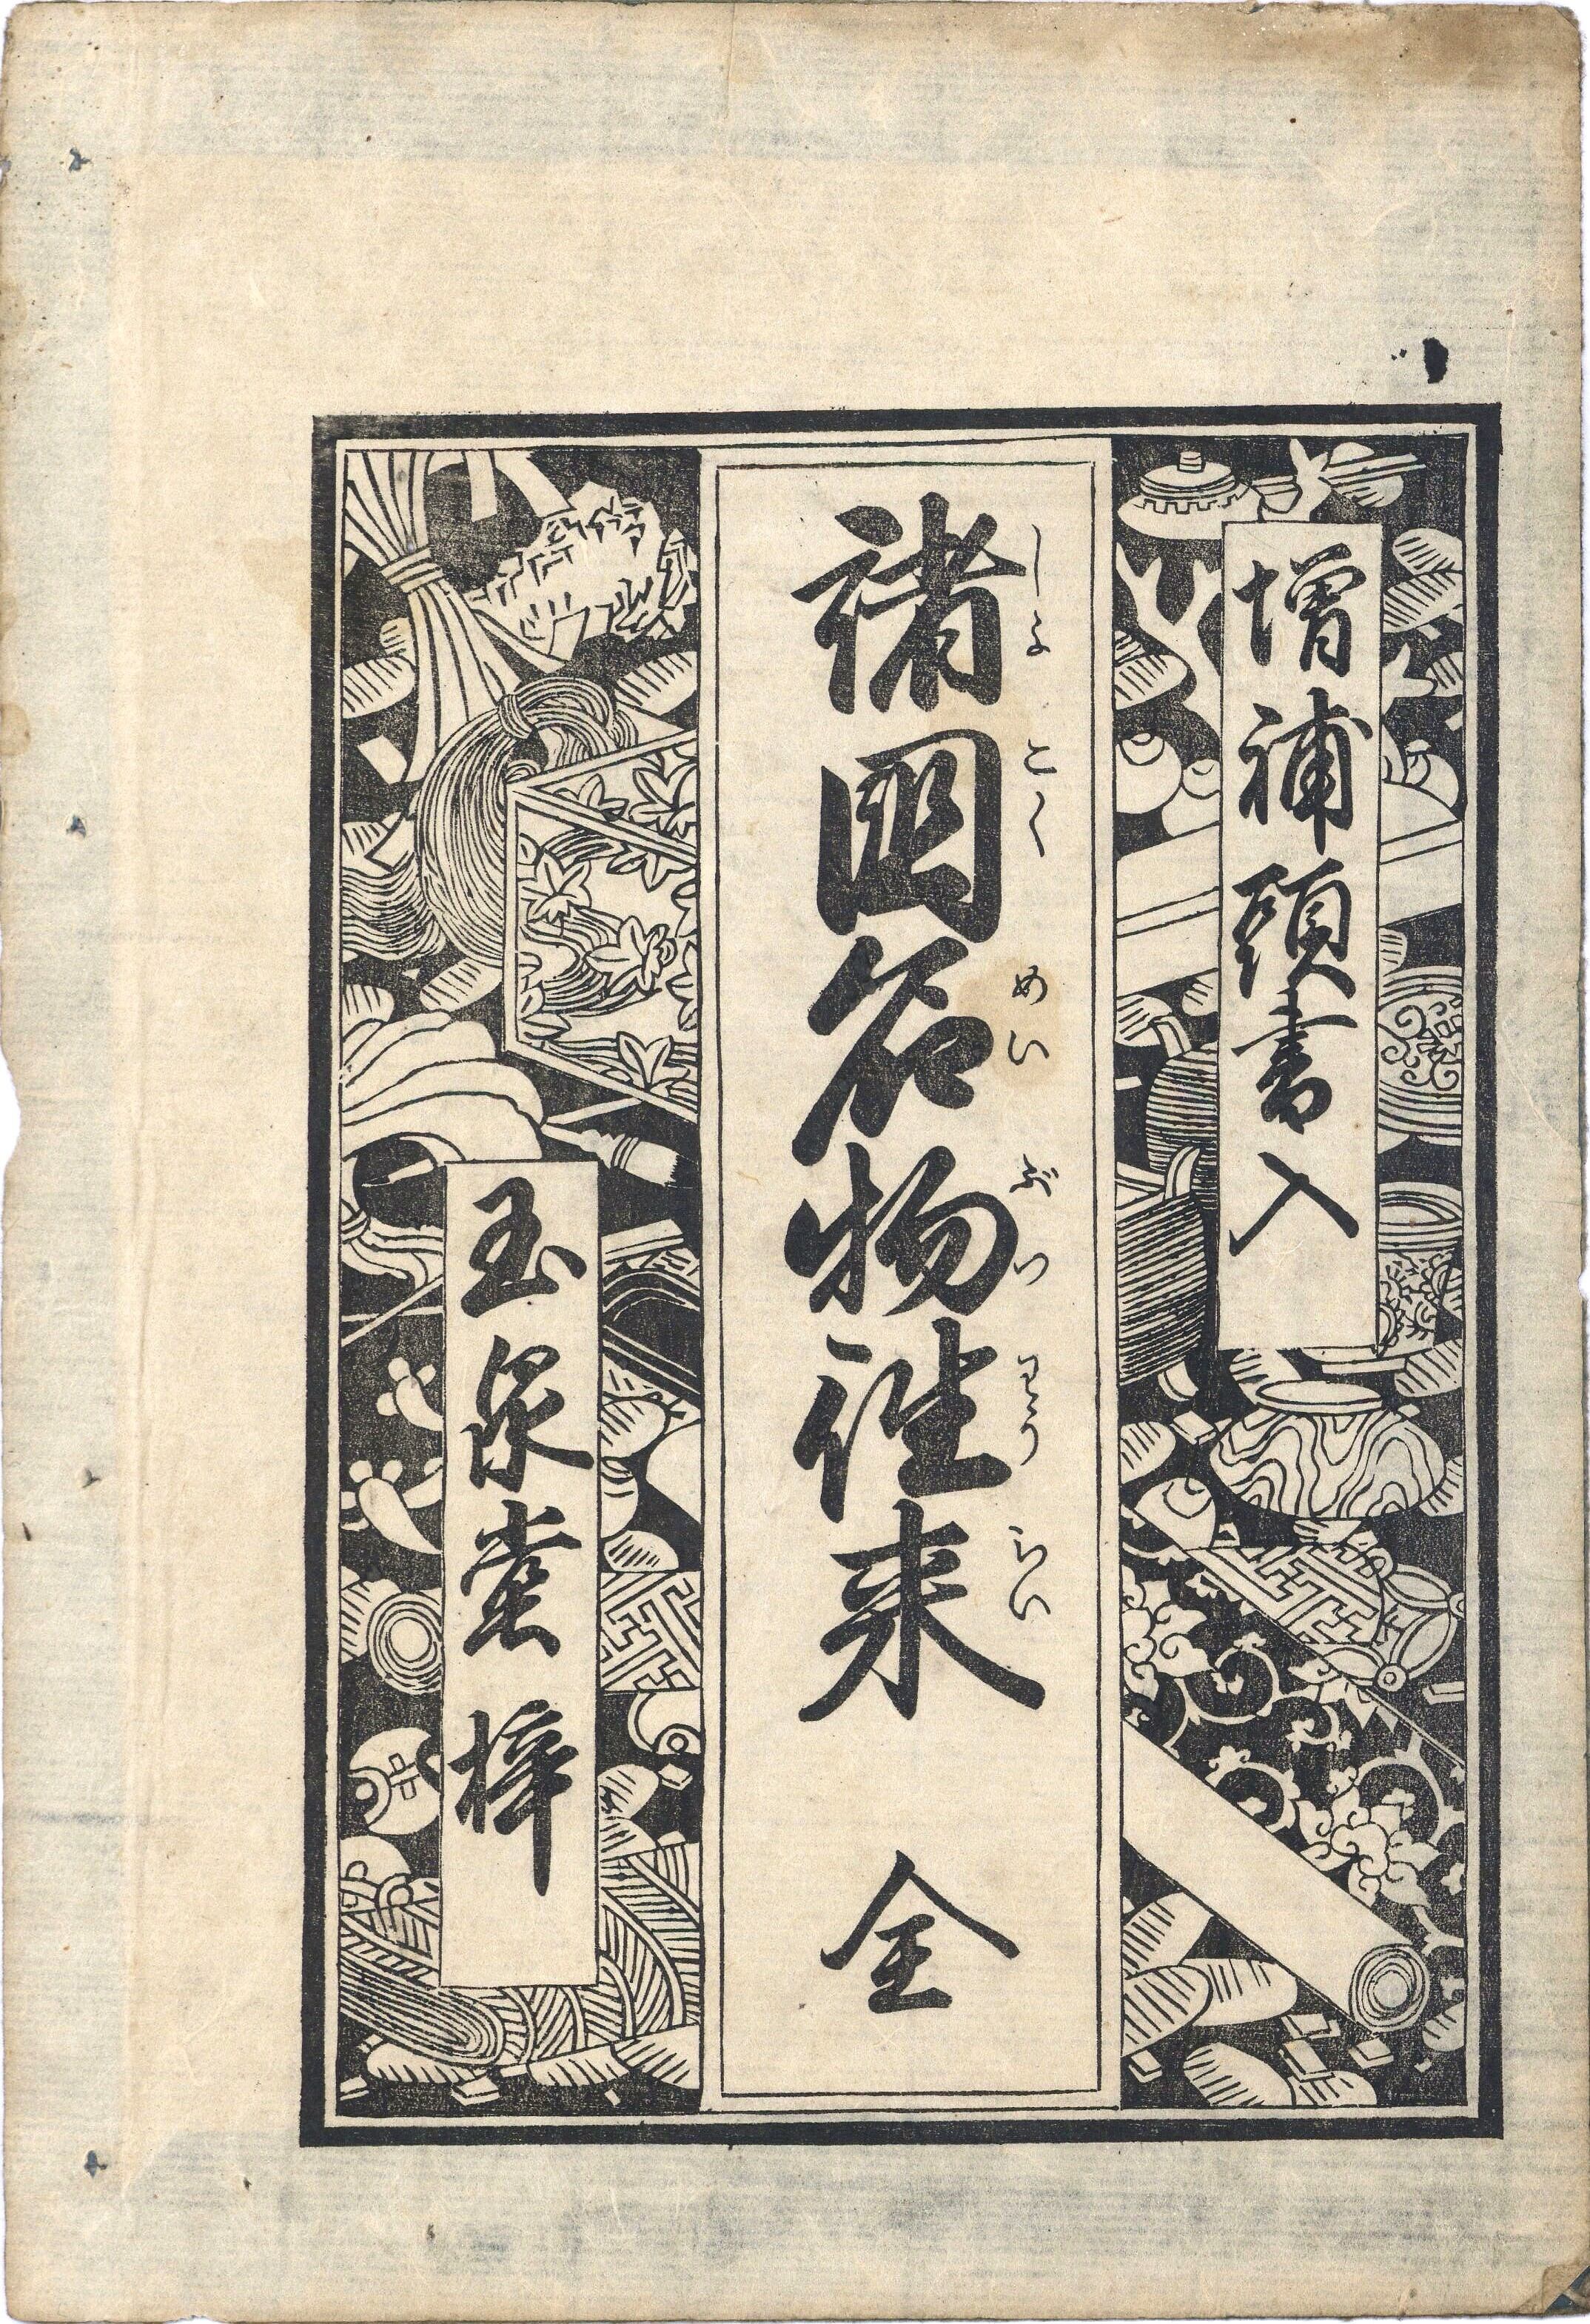 増補頭書入
諸国名物往来 全
しよこくめいぶつわうらい
玉泉堂梓